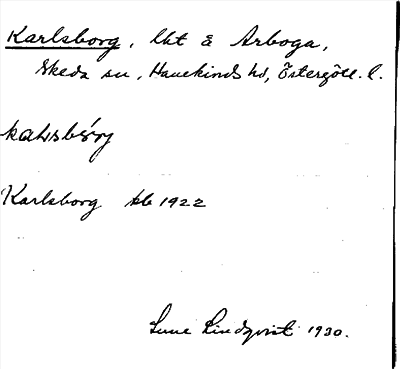 Karlsborg, lht å Arboga,
Skeda sn, Hanekinds hd, Östergötl. l.
Karlsborg jb 1922
Sune Lindqvist 1930.